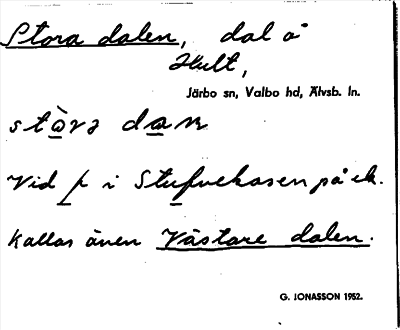 Stora dalen, dal å
Hult,
Järbo sn, Valbo hd, Älvsb. ln.
stòrə dan
Vid f i Stufvekasen på ek.
Kallas även Västare dalen.
G. JONASSON 1952.